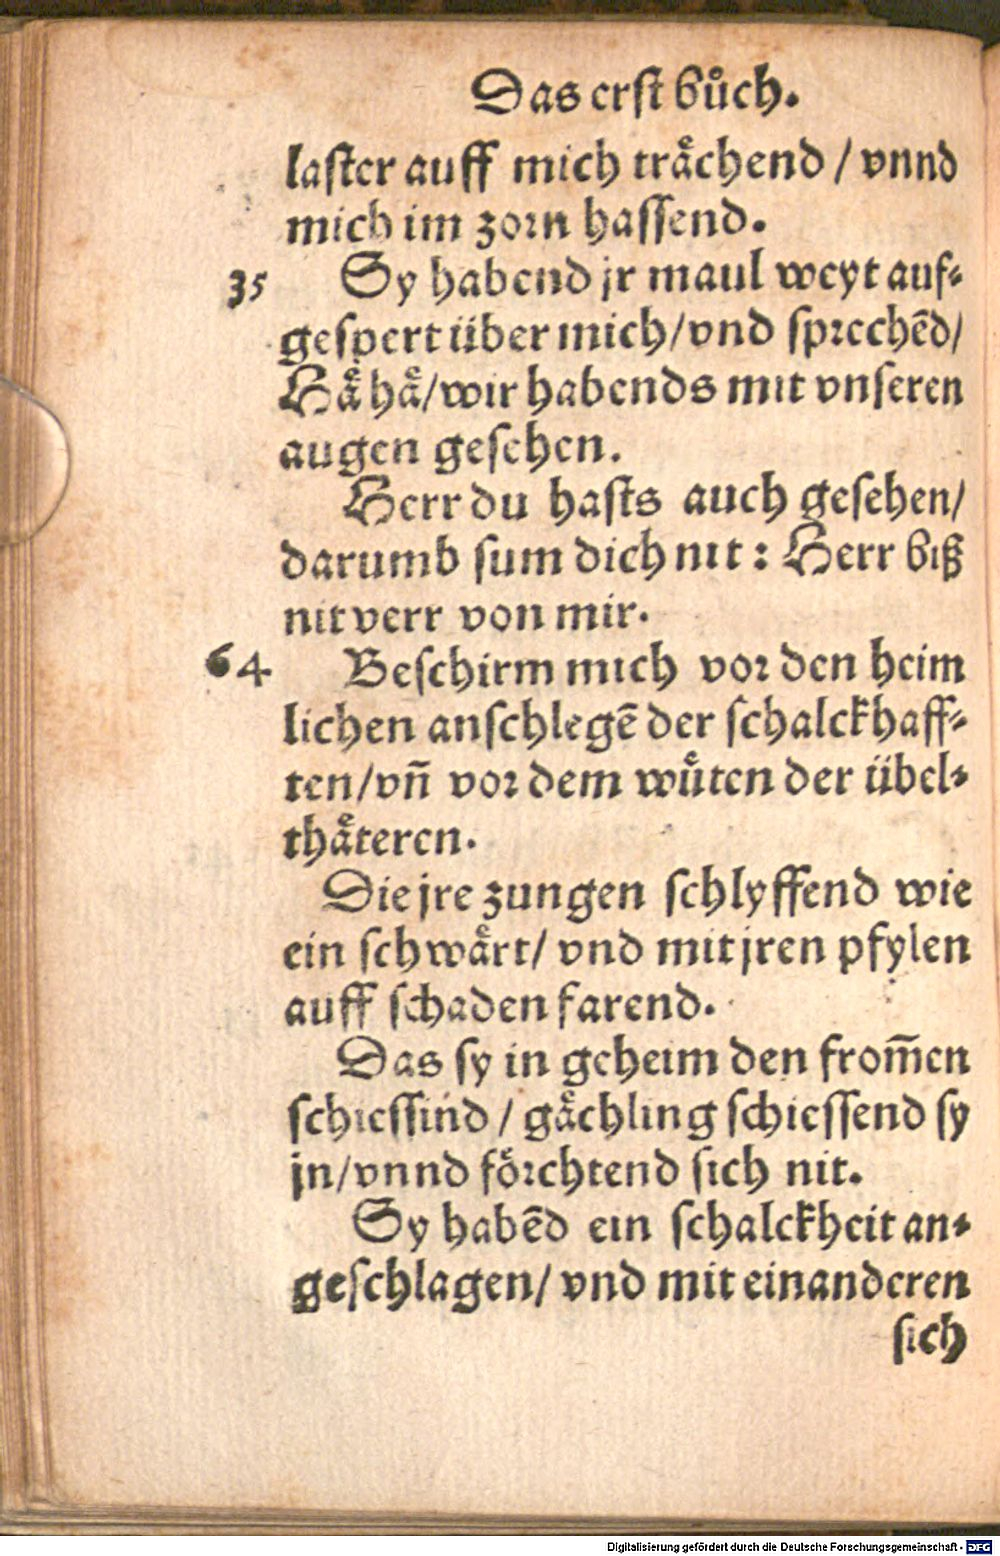 Das erst bůch.
laster auff mich traͤchend / vnnd
mich im zorn hassend.
35 Sy habend jr maul weyt auf-
gespert über mich/vnd sprechẽd/
Haͤ haͤ/wir habends mit vnseren
augen gesehen.
Herr du hasts auch gesehen/
darumb sum dich nit: Herr biß
nit verr von mir.
64 Beschirm mich vor den heim
lichen anschlegẽ der schalckhaff-
ten/vñ vor dem wuͤten der übel-
thaͤteren.
Die jre zungen schlyffend wie
ein schwaͤrt/ vnd mit jren pfylen
auff schaden farend.
Das sy in geheim den from̃en
schiessind / gaͤchling schiessend sy
jn/vnnd foͤrchtend sich nit.
Sy habẽd ein schalckheit an-
geschlagen/ vnd mit einanderen
sich
Digitalisierung gefördert durch die Deutsche Forschungsgemeinschaft - DFG